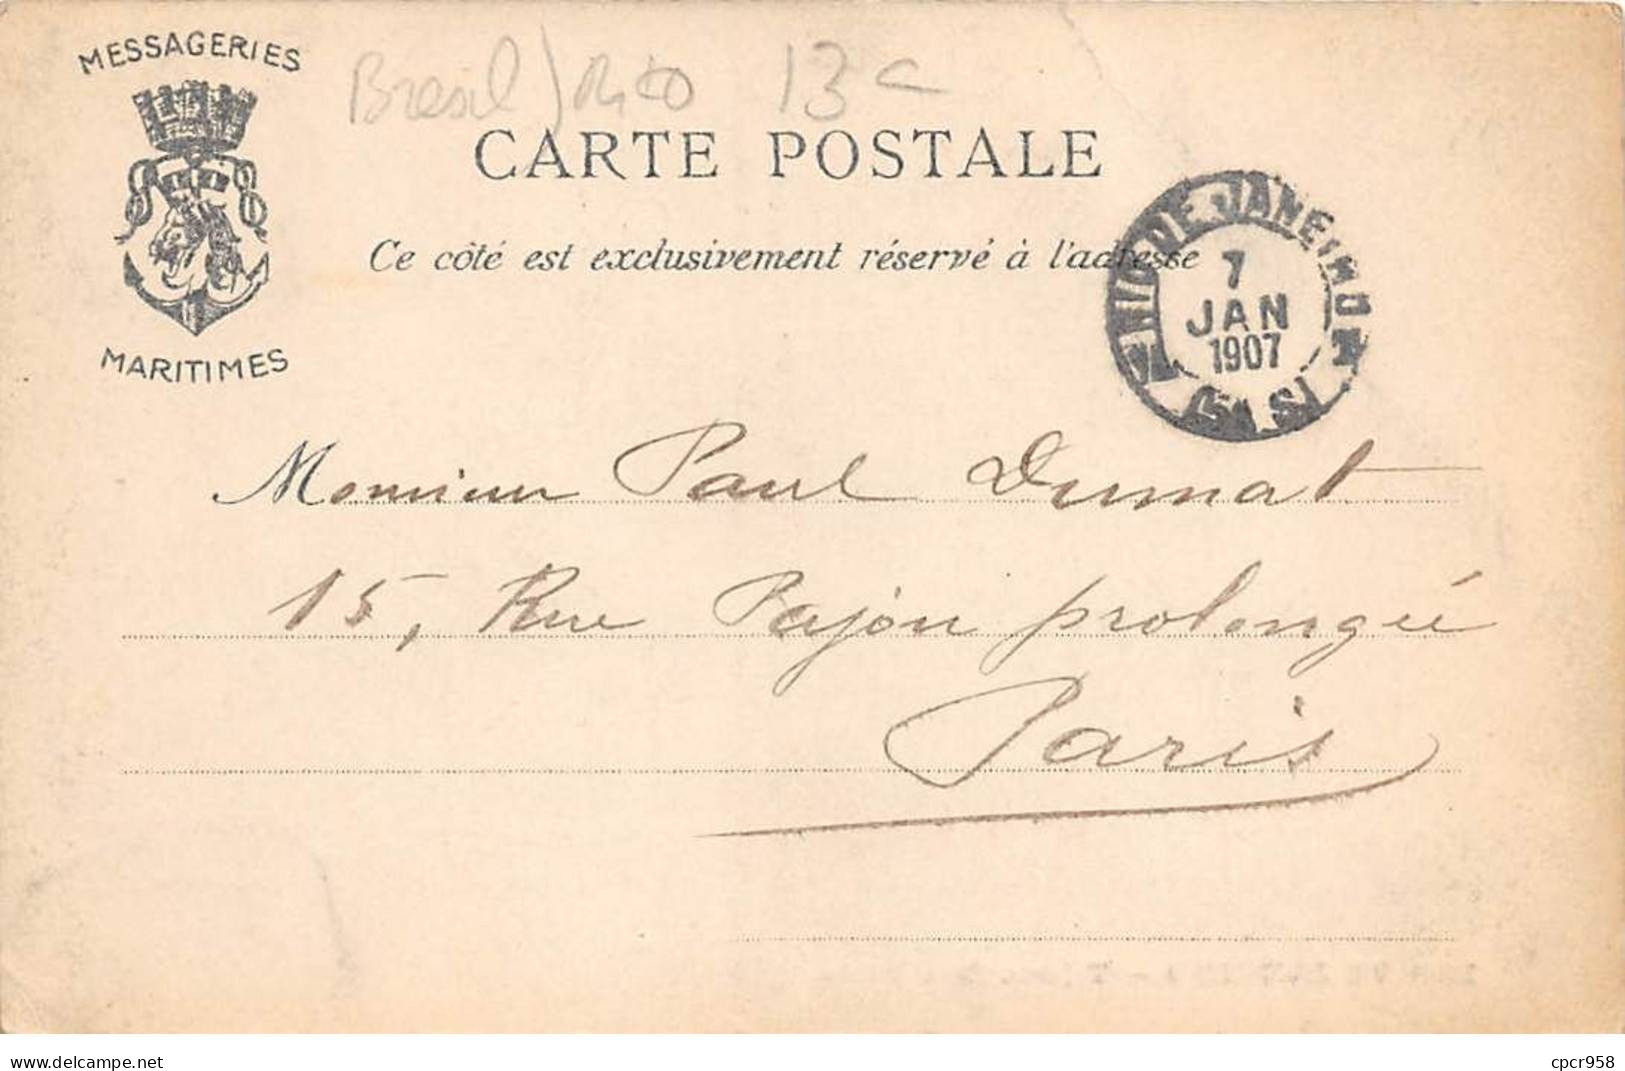 MESSAGERIES
MARITIMES
Bresil) Rio 13 c
CARTE POSTALE
Ce côté est exclusivement réservé à l'adresse
RIO DE JANEIRO
7
JAN
1907
Monsieur Paul Dumat
15, Rue Pajou prolongée
Paris
www.delcampe.net
cpcr958